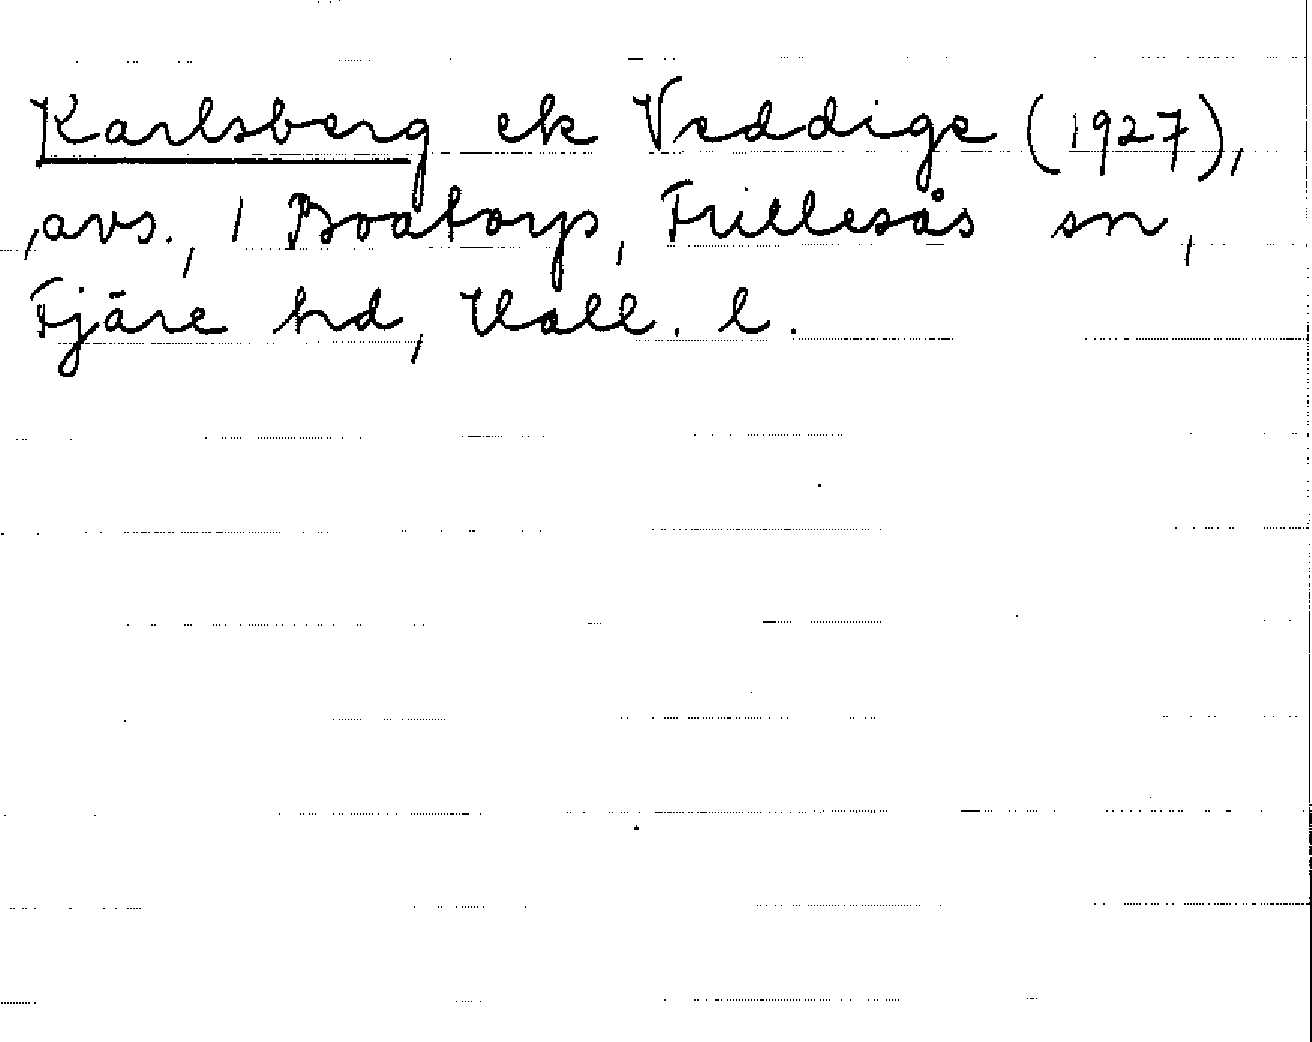 Karlsberg ek Veddige (1927),
avs., 1 Boatorp, Frillesås sn,
Fjäre hd, Hall. l.